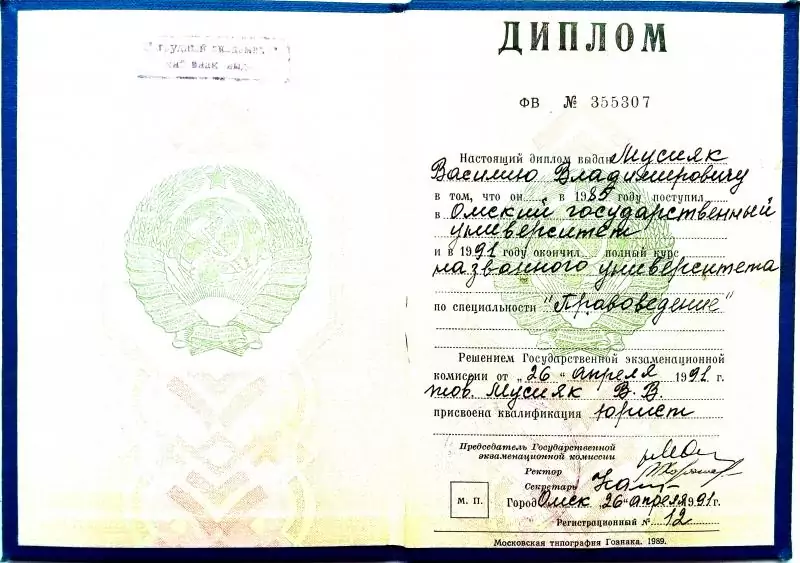 ДИПЛОМ
ФВ № 355307
Настоящий диплом выдан Мусияк
Василию Владимировичу
в том, что он в 1985 году поступил
в Омский государственный
университет
и в 1991 году окончил полный курс
названного университета
по специальности "Правоведение"
Решением Государственной экзаменационной
комиссии от „26" апреля 1991 г.
тов. Мусияк В.В.
присвоена квалификация юрист
Председатель Государственной
экзаменационной комиссии
Ректор
Секретарь
М. П.
Город Омск „26" апреля 1991 г.
Регистрационный № 12
Московская типография Гознака. 1989.